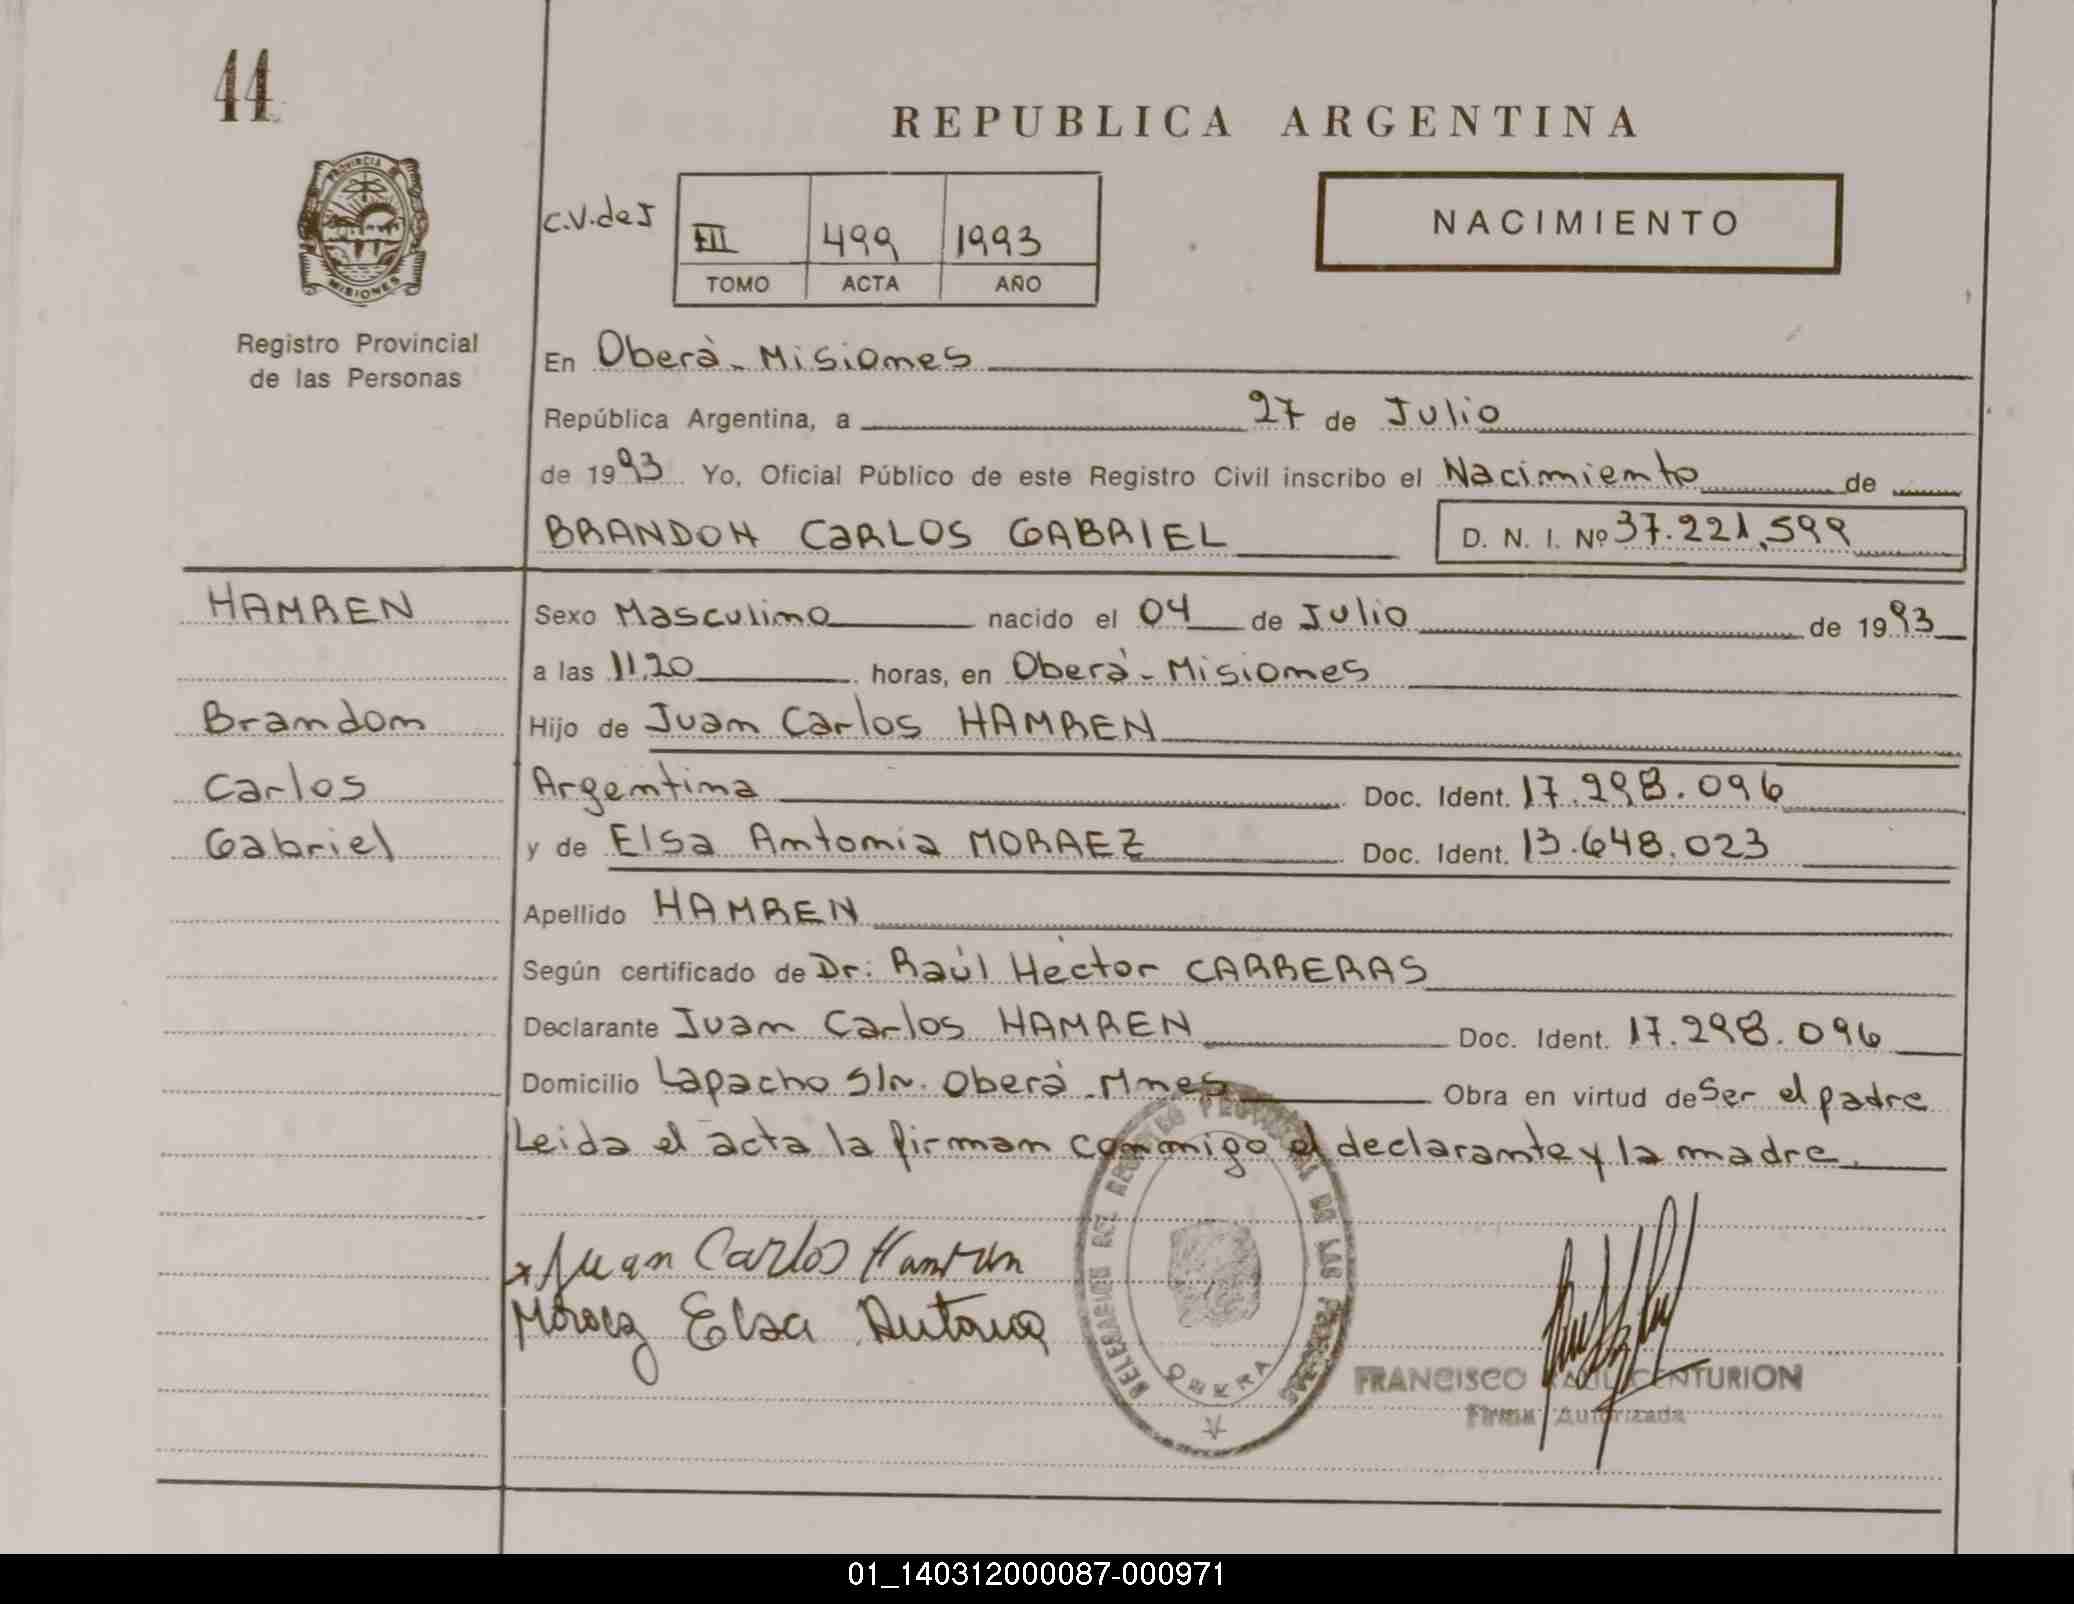 44
REPUBLICA ARGENTINA
PROVINCIA
MISIONES
Registro Provincial
de las Personas
NACIMIENTO
C.V.deI
III 499 1993
TOMO ACTA AÑO
En Oberá - Misiones
República Argentina, a 27 de Julio
de 1993 Yo, Oficial Público de este Registro Civil inscribo el Nacimiento de
BRANDON CARLOS GABRIEL D. N. I. Nº 37.221.599
HAMREN
Brandon
Carlos
Gabriel
Sexo Masculino nacido el 04 de Julio de 1993
a las 11,20 horas, en Oberá - Misiones
Hijo de Juan Carlos HAMREN
Argentina Doc. Ident. 17.298.096
y de Elsa Antonia MORAEZ Doc. Ident. 13.648.023
Apellido HAMREN
Según certificado de Dr: Raúl Héctor CARRERAS
Declarante Juan Carlos HAMREN Doc. Ident. 17.298.096
Domicilio Lapacho s/n. Oberá - Mnes Obra en virtud de Ser el padre
Leida el acta la firman conmigo el declarante y la madre.
Juan Carlos Hamren
Moraez Elsa Antonia
DELEGACION DEL REGISTRO PROVINCIAL DE LAS PERSONAS
OBERA
FRANCISCO RAUL CENTURION
Firma Autorizada
01_140312000087-000971